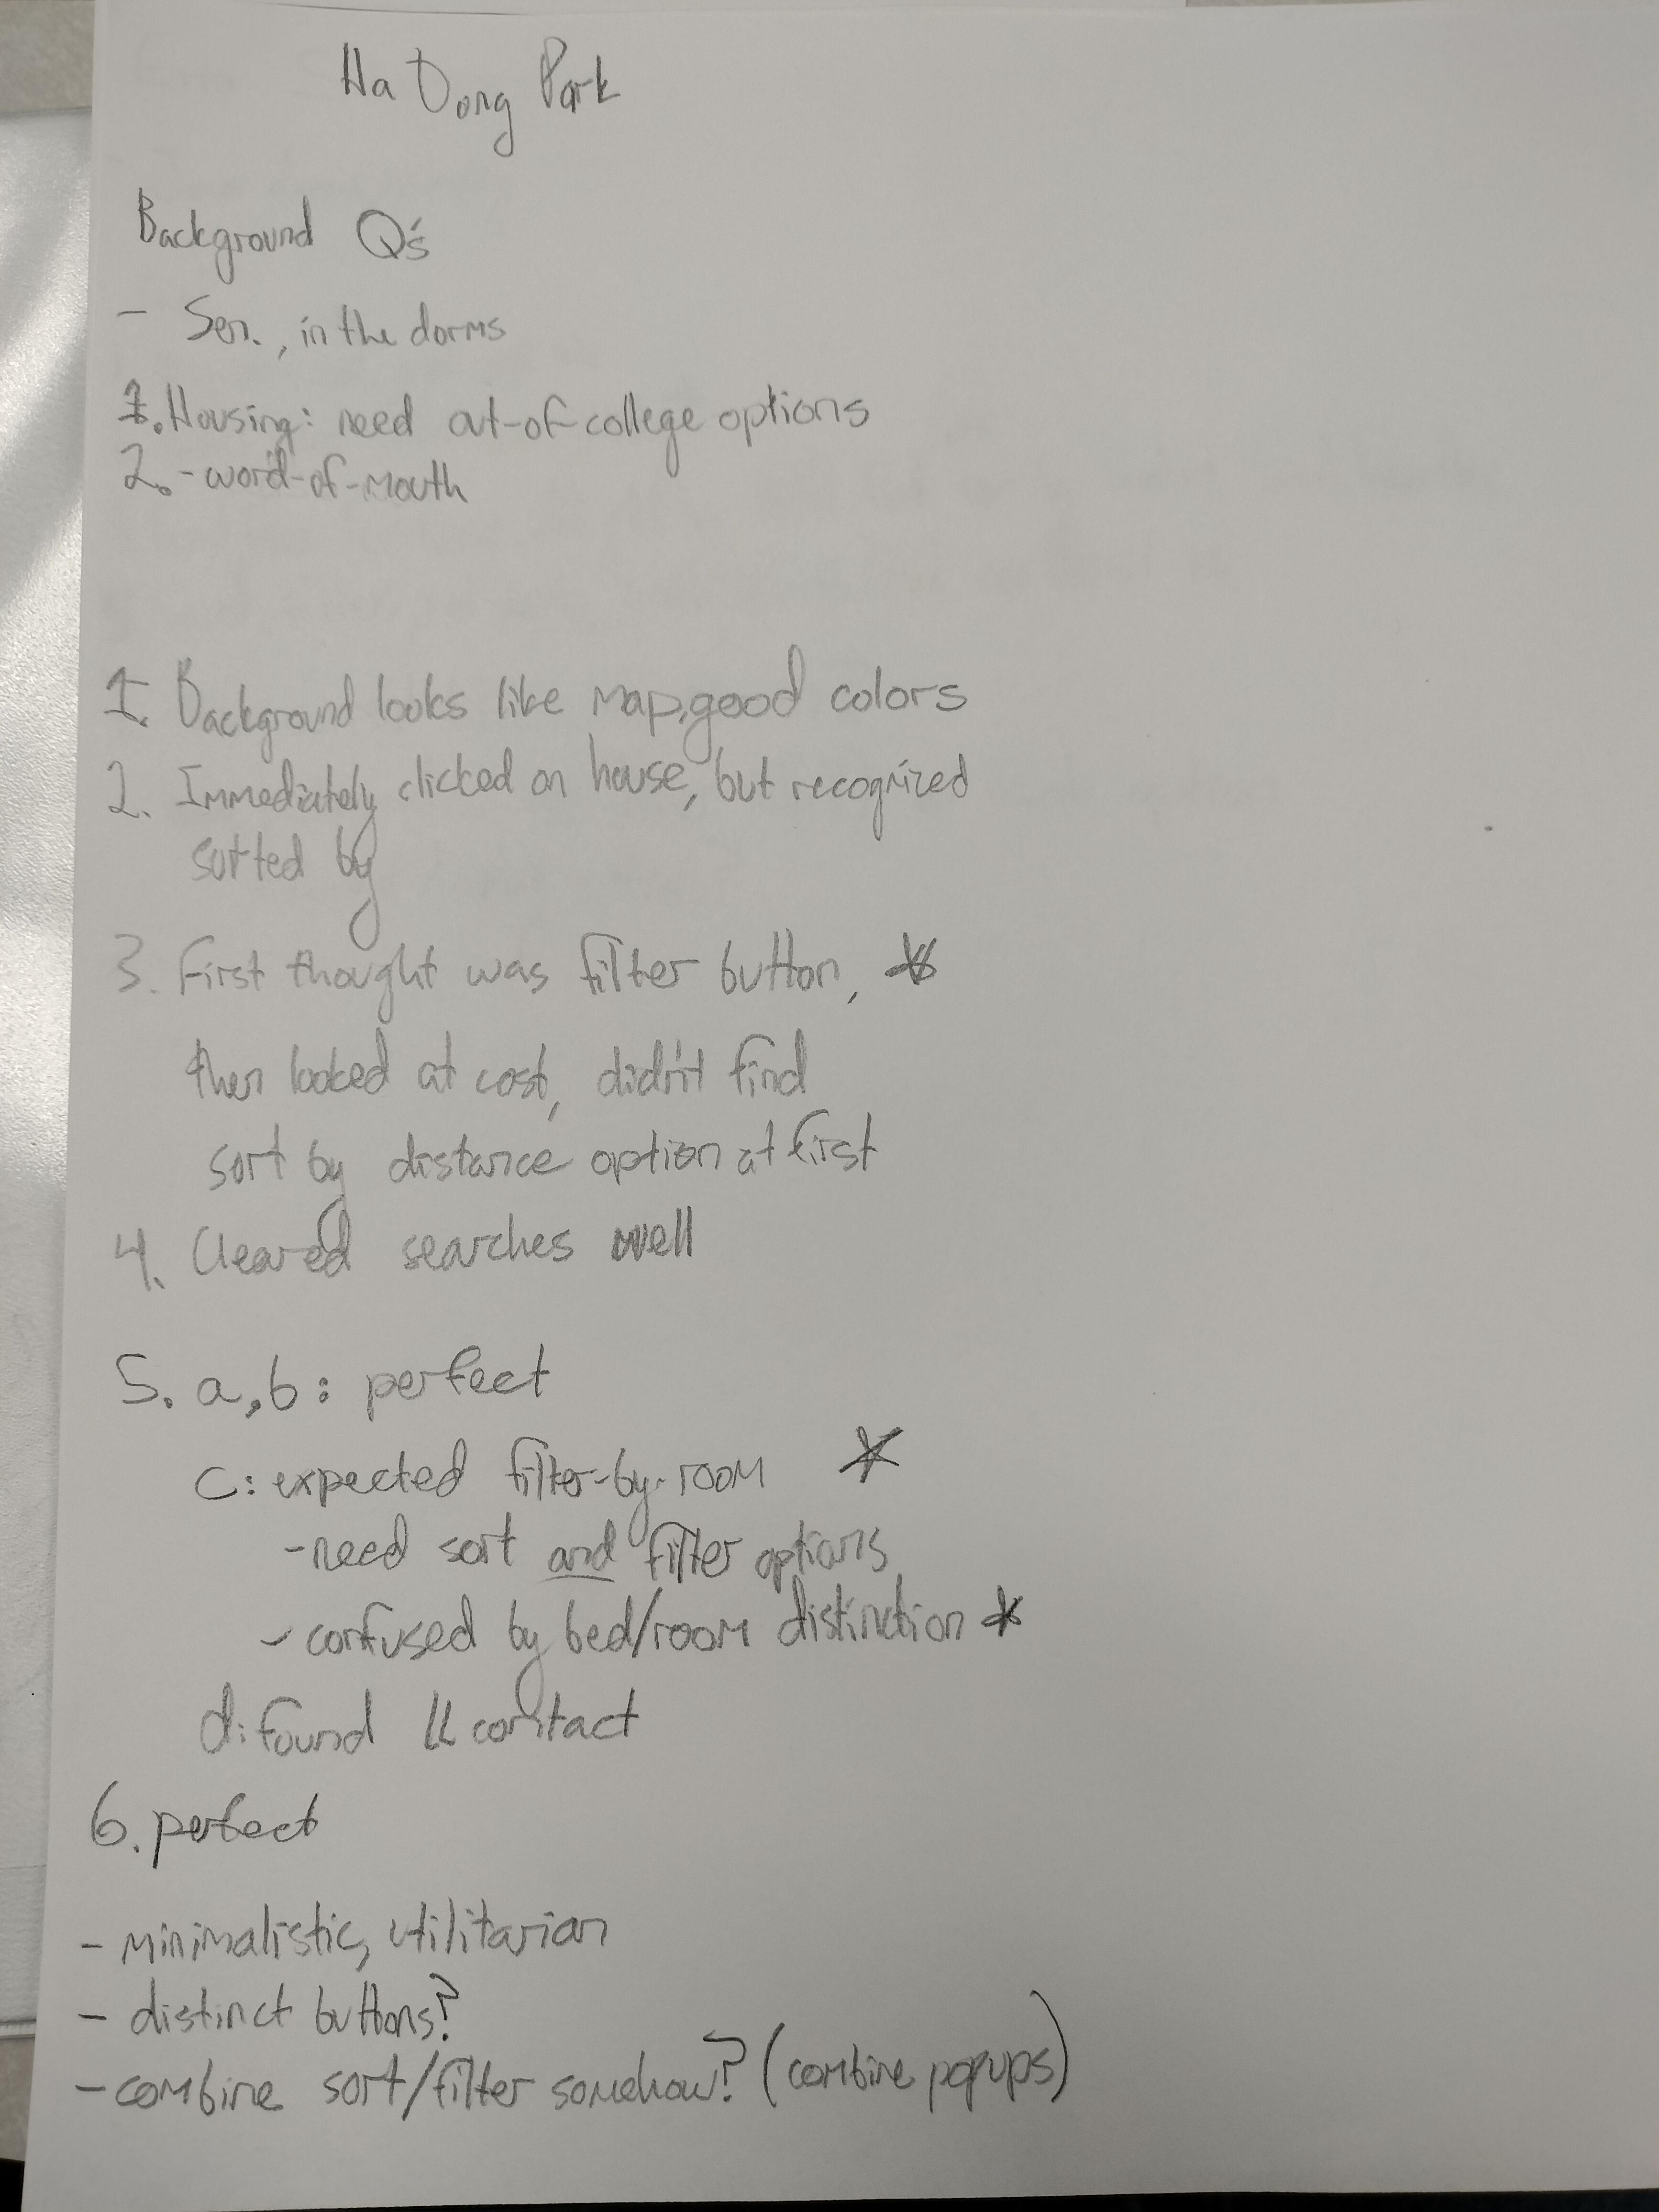 Ha Dong Park
Background Q's
- Sen., in the dorms
1. Housing: need out-of-college options
2. - word-of-mouth
1. Background looks like map, good colors
2. Immediately clicked on house, but recognized
sorted by
3. First thought was filter button, *
then looked at cost, didn't find
sort by distance option at first
4. Cleared searches well
5. a, b: perfect
c: expected filter-by-room *
- need sort and filter options
- confused by bed/room distinction *
d: found LL contact
6. perfect
- minimalistic, utilitarian
- distinct buttons?
- combine sort/filter somehow? (combine popups)